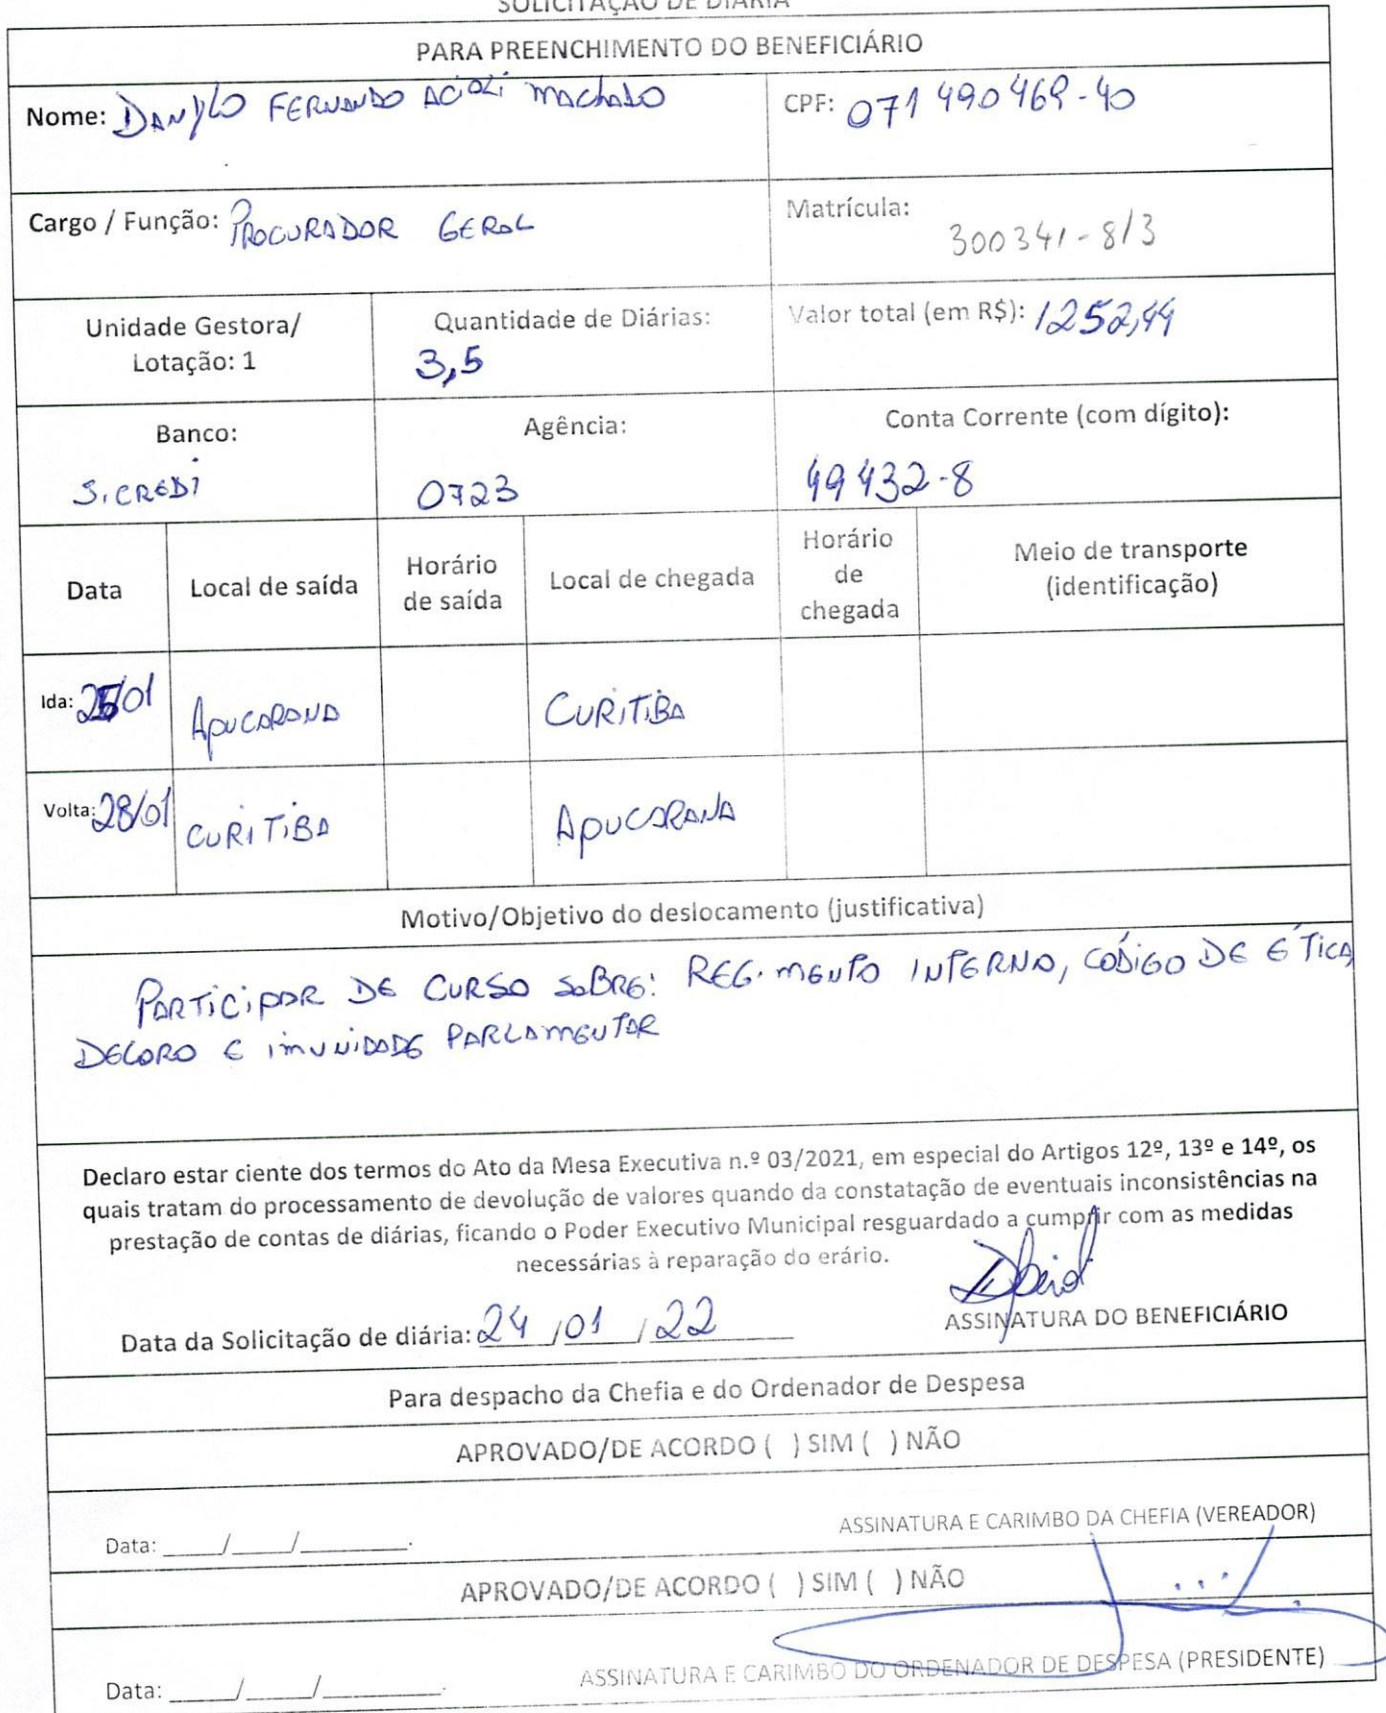 SOLICITAÇÃO DE DIÁRIA
PARA PREENCHIMENTO DO BENEFICIÁRIO
Nome: DANYLO FERNANDO ACIOLI MACHADO
CPF: 071 490 469-40
Cargo / Função: PROCURADOR GERAL
Matrícula: 300341-8/3
Unidade Gestora/
Lotação: 1
Quantidade de Diárias:
3,5
Valor total (em R$): 1252,44
Banco:
SICREDI
Agência:
0723
Conta Corrente (com dígito):
49432-8
Data
Local de saída
Horário
de saída
Local de chegada
Horário
de
chegada
Meio de transporte
(identificação)
Ida: 25/01
APUCARANA
CURITIBA
Volta: 28/01
CURITIBA
APUCARANA
Motivo/Objetivo do deslocamento (justificativa)
PARTICIPAR DE CURSO SOBRE: REGIMENTO INTERNO, CÓDIGO DE ÉTICA,
DECORO E IMUNIDADE PARLAMENTAR
Declaro estar ciente dos termos do Ato da Mesa Executiva n.º 03/2021, em especial do Artigos 12º, 13º e 14º, os
quais tratam do processamento de devolução de valores quando da constatação de eventuais inconsistências na
prestação de contas de diárias, ficando o Poder Executivo Municipal resguardado a cumprir com as medidas
necessárias à reparação do erário.
Data da Solicitação de diária: 24/01/22
ASSINATURA DO BENEFICIÁRIO
Para despacho da Chefia e do Ordenador de Despesa
APROVADO/DE ACORDO ( ) SIM ( ) NÃO
Data: ____/____/________.
ASSINATURA E CARIMBO DA CHEFIA (VEREADOR)
APROVADO/DE ACORDO ( ) SIM ( ) NÃO
Data: ____/____/________.
ASSINATURA E CARIMBO DO ORDENADOR DE DESPESA (PRESIDENTE)